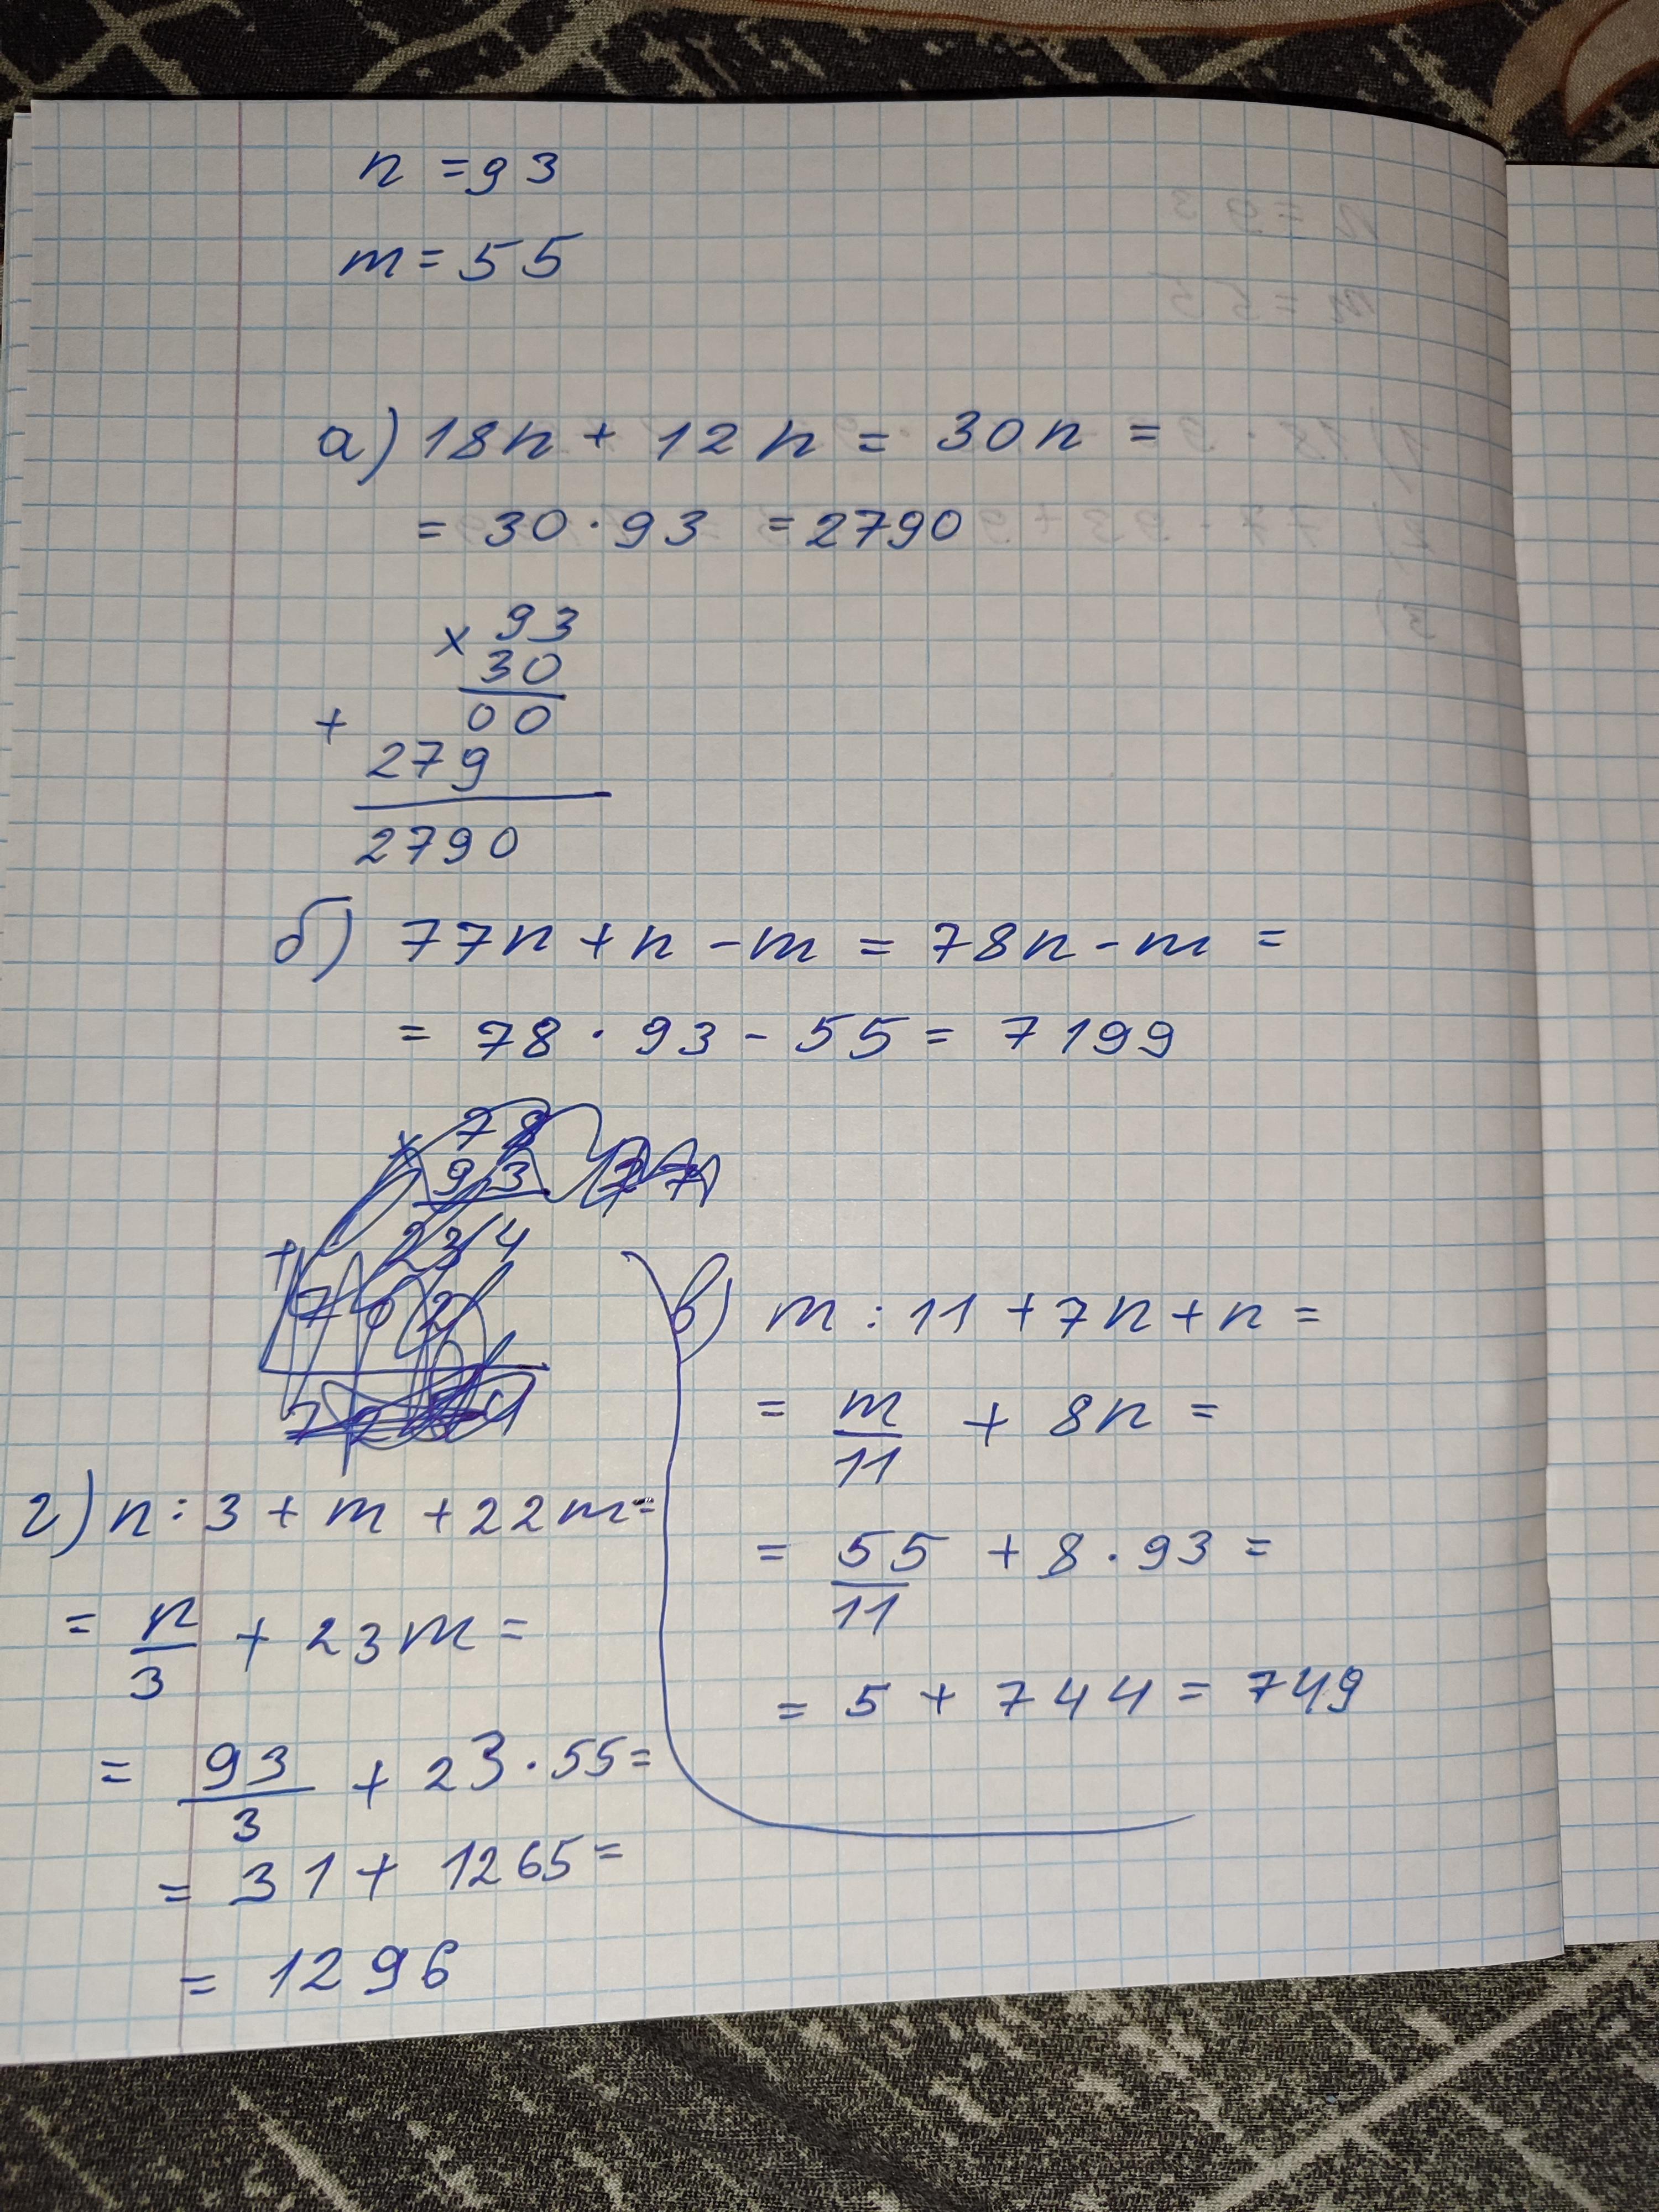 n = 93
m = 55
а) 18n + 12n = 30n =
= 30 · 93 = 2790
× 93
30
+ 00
279
2790
б) 77n + n - m = 78n - m =
= 78 · 93 - 55 = 7199
× 78
93
+ 234
702
в) m : 11 + 7n + n =
= m/11 + 8n =
= 55/11 + 8 · 93 =
= 5 + 744 = 749
г) n : 3 + m + 22m =
= n/3 + 23m =
= 93/3 + 23 · 55 =
= 31 + 1265 =
= 1296